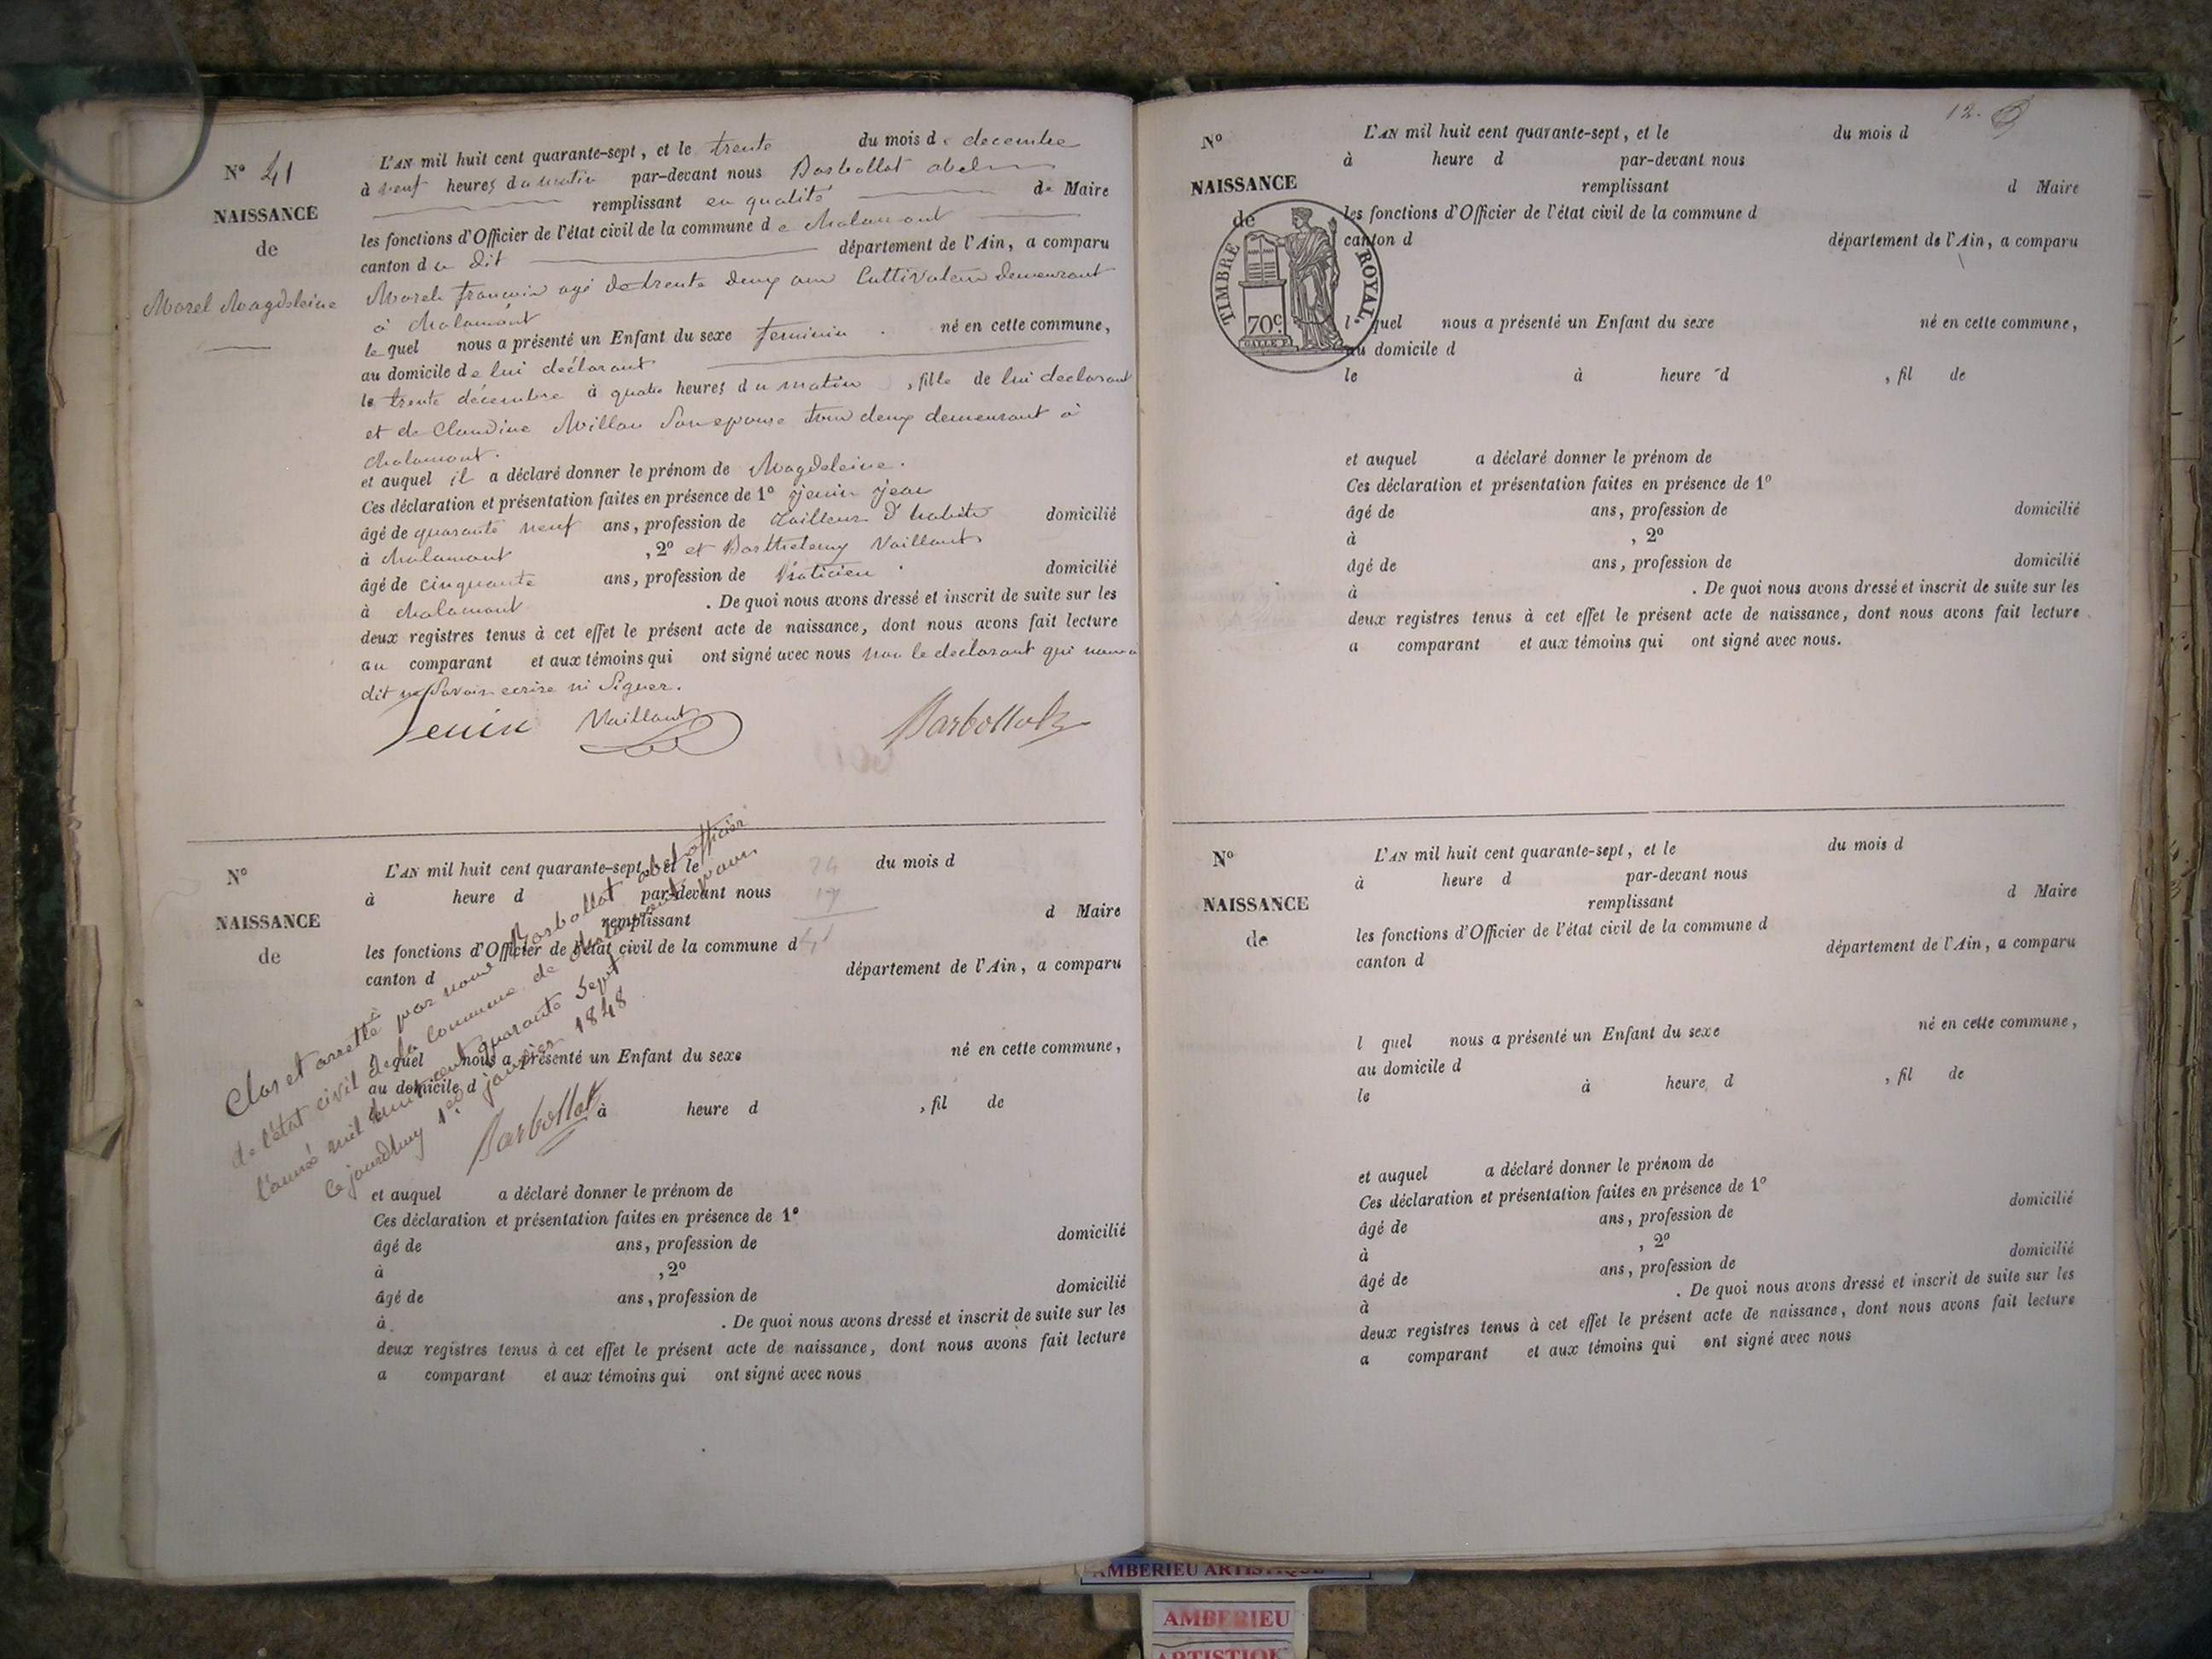 N° 41
NAISSANCE
de
Morel Magdeleine
L'AN mil huit cent quarante-sept, et le trente du mois de decembre
à neuf heures du matin par-devant nous Barbollat abel
remplissant en qualité de Maire
les fonctions d'Officier de l'état civil de la commune de chalamont
canton du dit département de l'Ain, a comparu
Morel francois agé de trente deux ans Cultivateur demeurant
à chalamont
lequel nous a présenté un Enfant du sexe feminin . né en cette commune,
au domicile de lui déclarant
le trente décembre à quatre heures du matin , fille de lui declarant
et de Claudine Millon son epouse tous deux demeurant à
chalamont.
et auquel il a déclaré donner le prénom de Magdeleine.
Ces déclaration et présentation faites en présence de 1° jenin jean
âgé de quarante neuf ans, profession de tailleur d'habits domicilié
à chalamont , 2° et Barthelemy Vaillant
âgé de cinquante ans, profession de Praticien . domicilié
à chalamont . De quoi nous avons dressé et inscrit de suite sur les
deux registres tenus à cet effet le présent acte de naissance, dont nous avons fait lecture
au comparant et aux témoins qui ont signé avec nous non le declarant qui nous a
dit ne savoir ecrire ni signer.
Jenin Vaillant Barbollat
N°
NAISSANCE
de
L'AN mil huit cent quarante-sept, et le 24 du mois d
à heure d par-devant nous 17
remplissant d Maire
les fonctions d'Officier de l'état civil de la commune d 41
canton d département de l'Ain, a comparu
lequel nous a présenté un Enfant du sexe né en cette commune,
au domicile d
à heure d , fil de
Clos et arretté par nous Barbollat abel officier
de l'état civil de la Commune de chalamont pour
l'année mil huit cent quarante sept
ce jourdhuy 1er janvier 1848
Barbollat
et auquel a déclaré donner le prénom de
Ces déclaration et présentation faites en présence de 1°
âgé de ans, profession de domicilié
à , 2°
âgé de ans, profession de domicilié
à . De quoi nous avons dressé et inscrit de suite sur les
deux registres tenus à cet effet le présent acte de naissance, dont nous avons fait lecture
a comparant et aux témoins qui ont signé avec nous
12.
N°
NAISSANCE
de
TIMBRE ROYAL
70c
L'AN mil huit cent quarante-sept, et le du mois d
à heure d par-devant nous
remplissant d Maire
les fonctions d'Officier de l'état civil de la commune d
canton d département de l'Ain, a comparu
l quel nous a présenté un Enfant du sexe né en cette commune,
au domicile d
le à heure d , fil de
et auquel a déclaré donner le prénom de
Ces déclaration et présentation faites en présence de 1°
âgé de ans, profession de domicilié
à , 2°
âgé de ans, profession de domicilié
à . De quoi nous avons dressé et inscrit de suite sur les
deux registres tenus à cet effet le présent acte de naissance, dont nous avons fait lecture
a comparant et aux témoins qui ont signé avec nous.
N°
NAISSANCE
de
L'AN mil huit cent quarante-sept, et le du mois d
à heure d par-devant nous
remplissant d Maire
les fonctions d'Officier de l'état civil de la commune d
canton d département de l'Ain, a comparu
l quel nous a présenté un Enfant du sexe né en cette commune,
au domicile d
le à heure d , fil de
et auquel a déclaré donner le prénom de
Ces déclaration et présentation faites en présence de 1°
âgé de ans, profession de domicilié
à , 2°
âgé de ans, profession de domicilié
à . De quoi nous avons dressé et inscrit de suite sur les
deux registres tenus à cet effet le présent acte de naissance, dont nous avons fait lecture
a comparant et aux témoins qui ont signé avec nous
AMBERIEU ARTISTIQUE
AMBERIEU
ARTISTIQUE